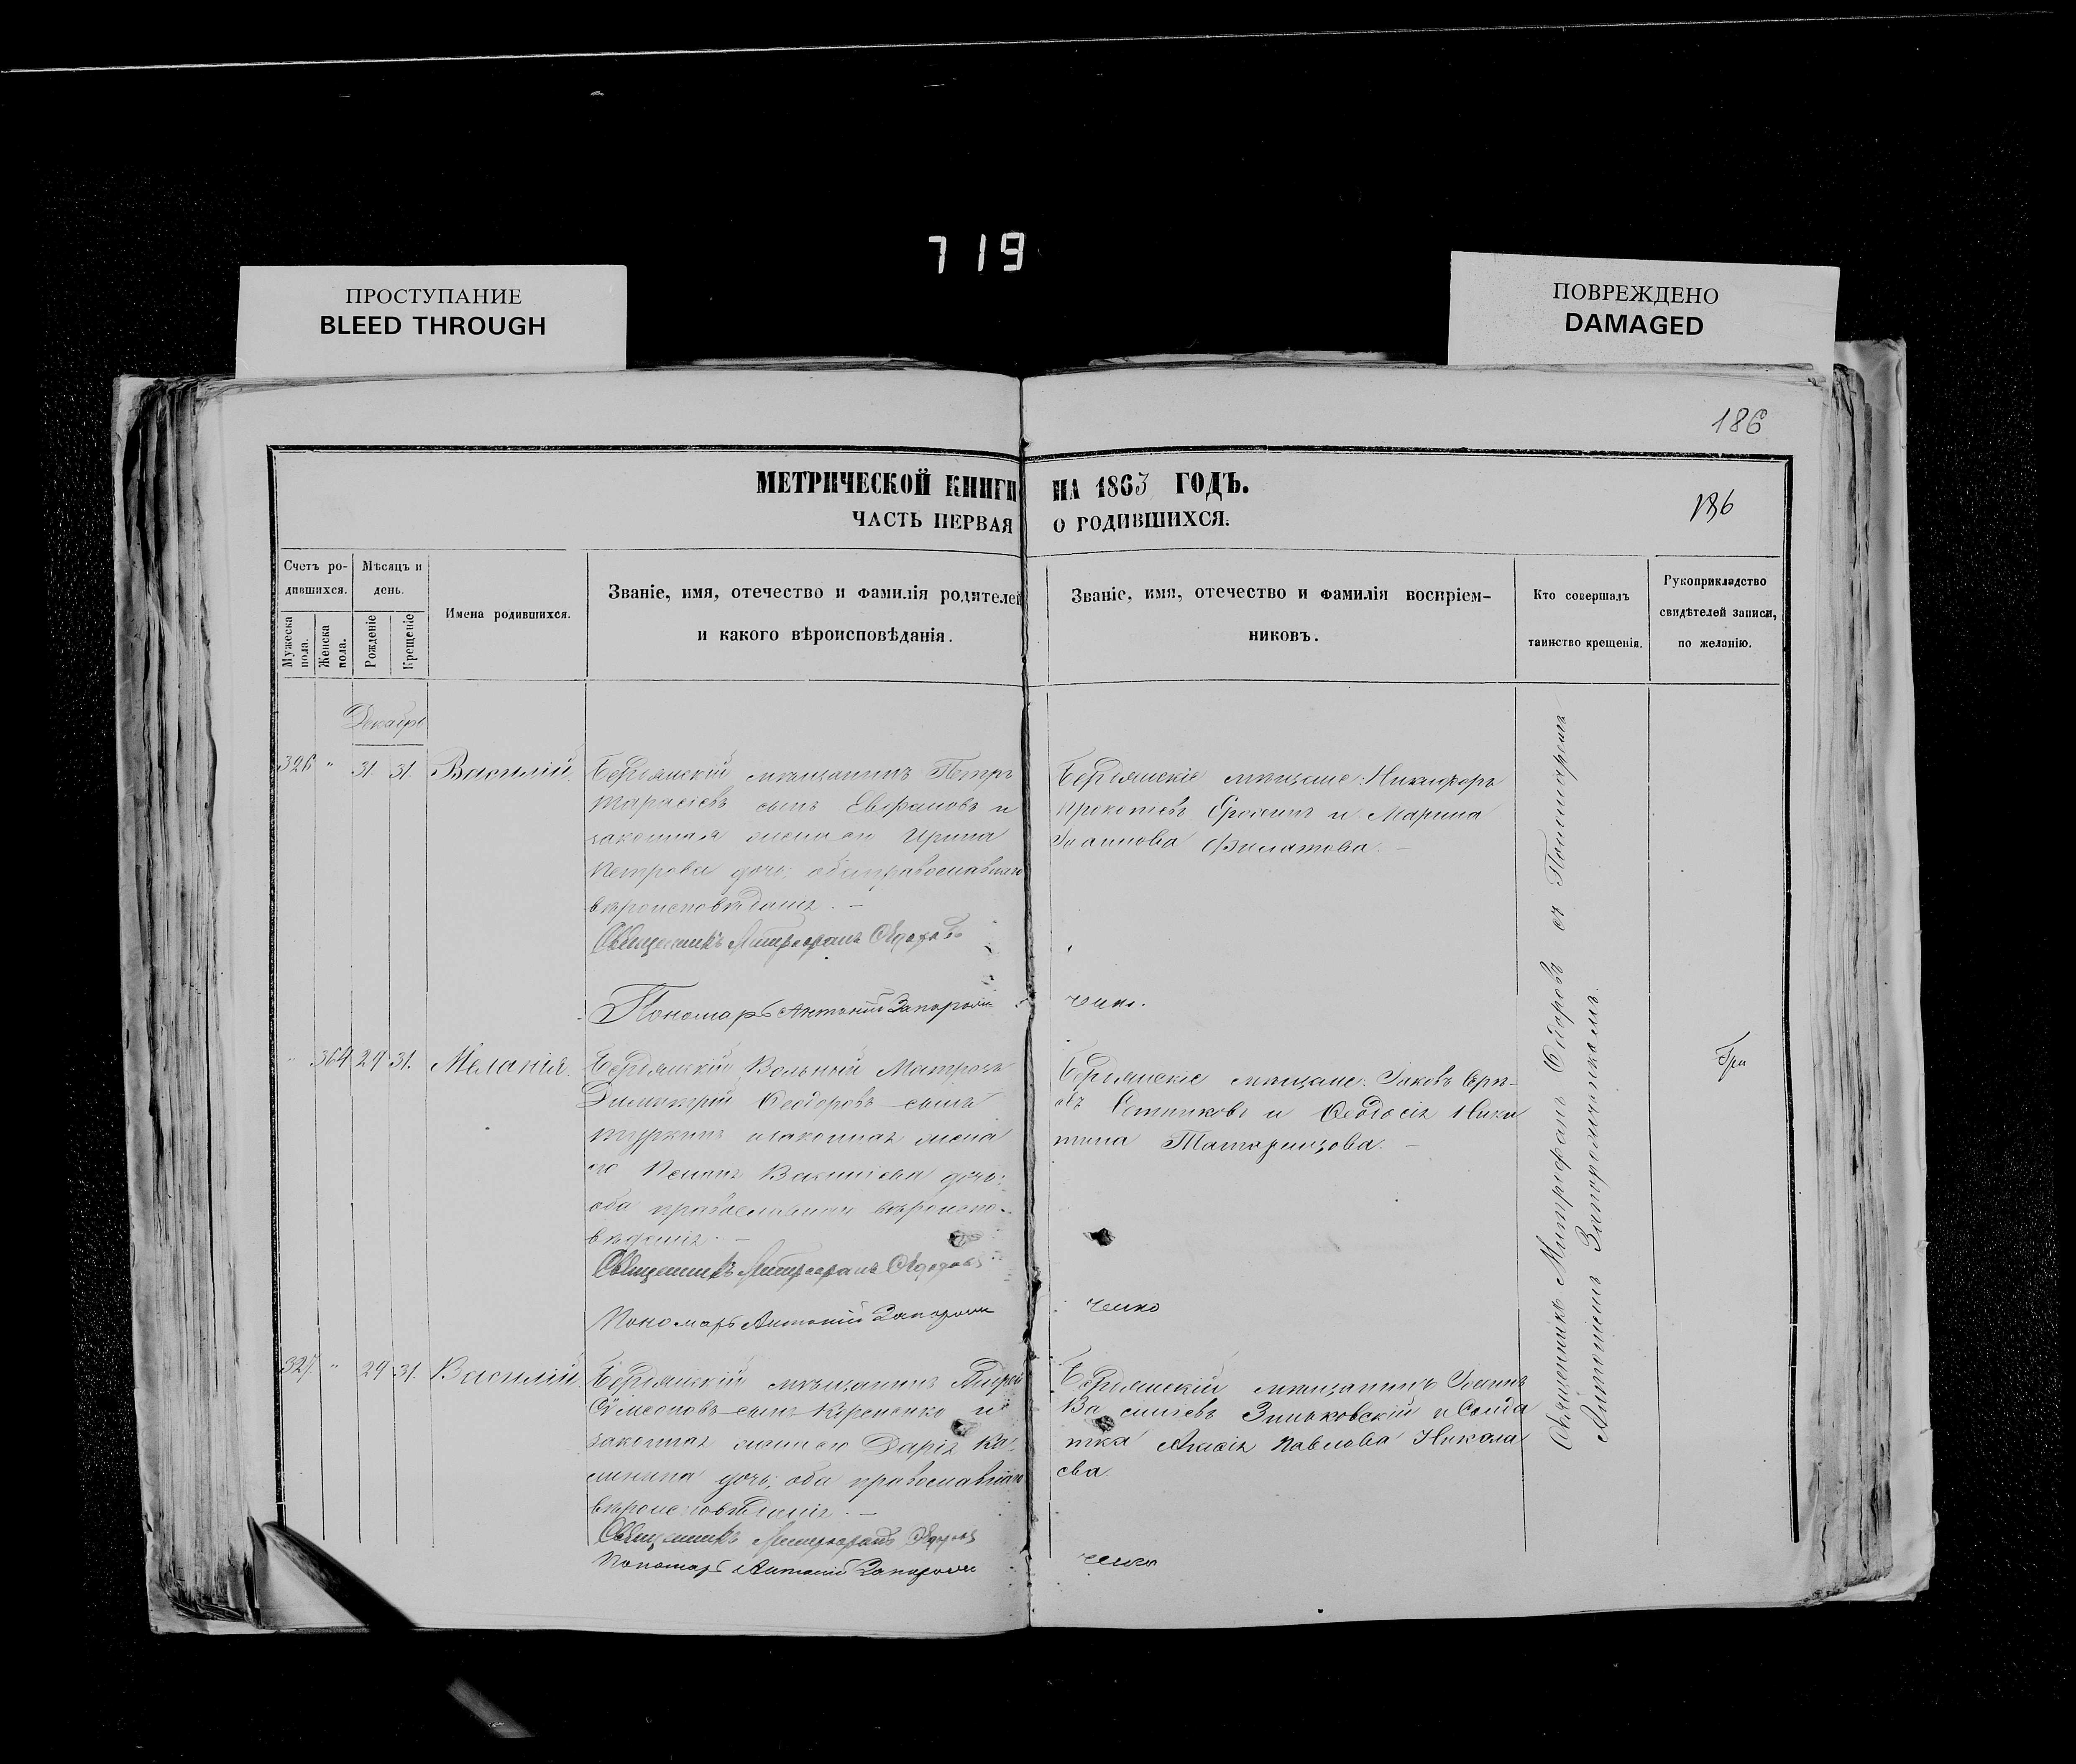 719
ПРОСТУПАНИЕ
BLEED THROUGH
ПОВРЕЖДЕНО
DAMAGED
186
МЕТРИЧЕСКОЙ КНИГИ НА 1863 ГОДЪ.
ЧАСТЬ ПЕРВАЯ О РОДИВШИХСЯ.
186
Счетъ ро-
дившихся.
Мужеска пола.
Женска пола.
Мѣсяцъ и
день.
Рожденіе
Крещеніе
Имена родившихся.
Званіе, имя, отечество и фамилія родителей
и какого вѣроисповѣданія.
Званіе, имя, отечество и фамилія воспріем-
никовъ.
Кто совершалъ
таинство крещенія.
Рукоприкладство
свидѣтелей записи,
по желанію.
Декабрь
326 " 31 31. Василій.
Бердянскій мѣщанинъ Петръ
Тарасіевъ сынъ Евфановъ и
законная жена его Ирина
Петрова дочь; оба православнаго
вѣроисповѣданія. —
Священникъ Митрофанъ Ѳедоровъ
Пономарь Антоній Запорожченко.
Бердянскіе мѣщане: Никифоръ
Прокопіевъ и Марина
Іоаннова Филатова. —
" 364 29 31. Меланія.
Бердянскій Вольный Матрозъ
Димитрій Ѳеодоровъ сынъ
Туркинъ и законная жена
его Васильева дочь;
оба православнаго вѣроиспо-
вѣданія. —
Священникъ Митрофанъ Ѳедоровъ
Пономарь Антоній Запорожченко
Бердянскіе мѣщане: Іаковъ
Сотниковъ и Ѳеодосія Ники
тина Татаринцова. —
327. " 29 31. Василій.
Бердянскій мѣщанинъ Андрей
Сѵмеоновъ сынъ и
законная жена его Дарія Ка
линина дочь; оба православнаго
вѣроисповѣданія. —
Священникъ Митрофанъ Ѳедоровъ
Пономарь Антоній Запорожченко
Бердянскій мѣщанинъ Іоаннъ
Васильевъ Зиньковскій и Солда
тка Павлова Никола
ева.
Священникъ Митрофанъ Ѳедоровъ съ Пономаремъ
Антоніемъ Запорожченкомъ.